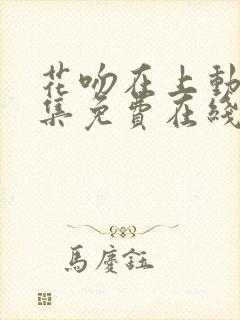 花吻在上動
集免費在綫
馬慶鈺